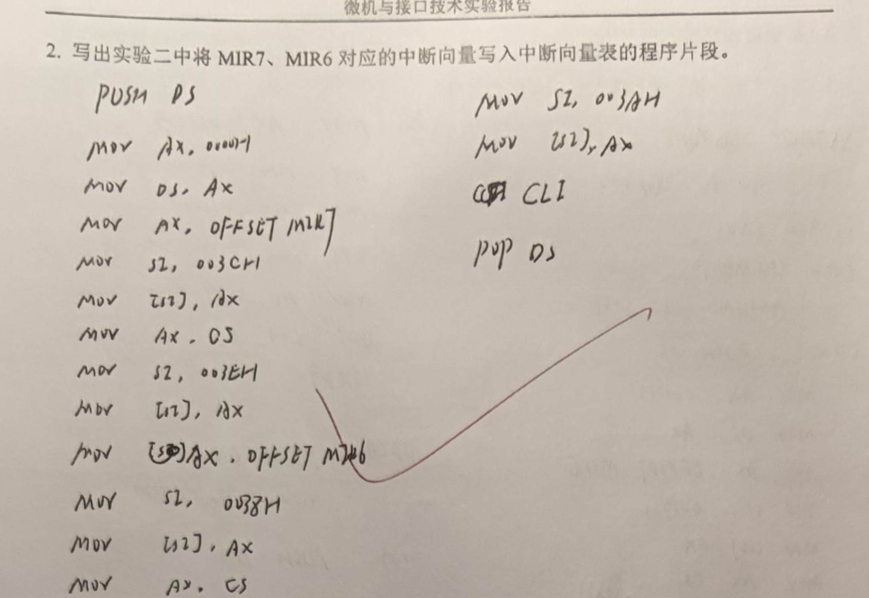 微机与接口技术实验报告
2. 写出实验二中将 MIR7、MIR6 对应的中断向量写入中断向量表的程序片段。
PUSH DS
MOV AX, 0000H
MOV DS, AX
MOV AX, OFFSET MIR7
MOV SI, 003CH
MOV [SI], AX
MOV AX, CS
MOV SI, 003EH
MOV [SI], AX
MOV AX, OFFSET MIR6
MOV SI, 0038H
MOV [SI], AX
MOV AX, CS
MOV SI, 003AH
MOV [SI], AX
CLI
POP DS